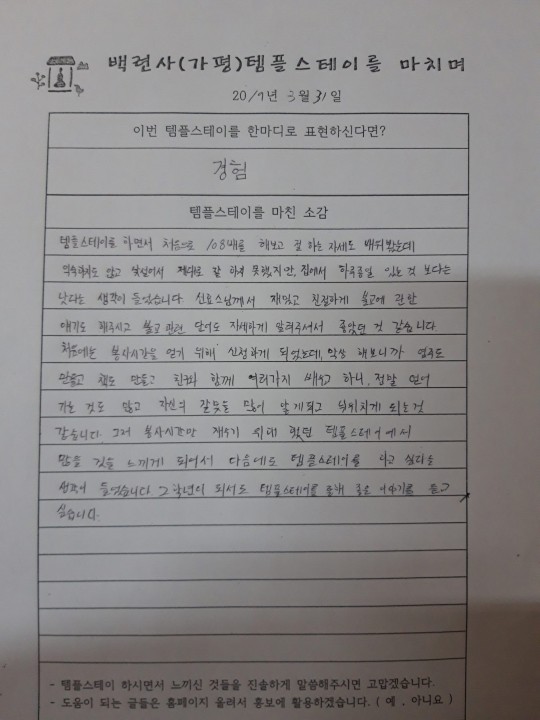 백련사(가평)템플스테이를 마치며
2019년 3월 31일
이번 템플스테이를 한마디로 표현하신다면?
경험
템플스테이를 마친 소감
템플스테이를 하면서 처음으로 108배를 해보고 절 하는 자세도 배워봤는데
익숙하지도 않고 낯설어서 제대로 잘 하지 못했지만, 집에서 하루종일 있는 것 보다는
낫다는 생각이 들었습니다 스님께서 재밌고 친절하게 불교에 관한
얘기도 해주시고 불교 관련 단어도 자세하게 알려주셔서 좋았던 것 같습니다.
처음에는 봉사시간을 얻기 위해 신청하게 되었는데, 막상 해보니까 염주도
만들고 책도 만들고 친구와 함께 여러가지 배우고 하니, 정말 얻어
가는 것도 많고 자신의 잘못을 많이 알게되고 뉘우치게 되는것
같습니다. 그저 봉사시간만 채우기 위해 왔던 템플스테이에서
많은 것을 느끼게 되어서 다음에도 템플스테이를 하고 싶다는
생각이 들었습니다. 고학년이 되서도 템플스테이를 통해 좋은 이야기를 듣고
싶습니다.
- 템플스테이 하시면서 느끼신 것들을 진솔하게 말씀해주시면 고맙겠습니다.
- 도움이 되는 글들은 홈페이지 올려서 홍보에 활용하겠습니다. ( 예 , 아니요 )